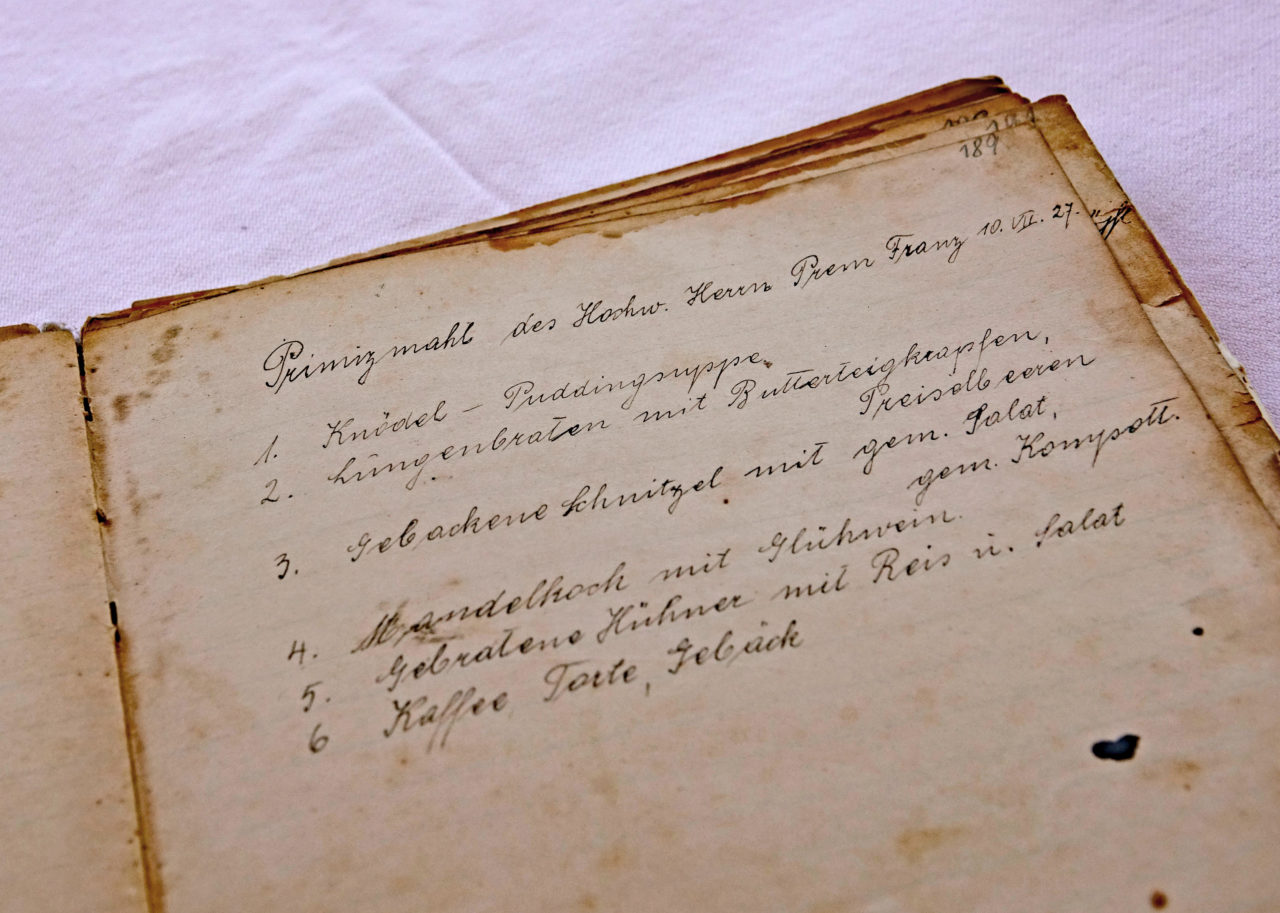 189
Primizmahl des Hochw. Herrn Prem Franz 10. VII. 27.
1. Knödel – Puddingsuppe
2. Lungenbraten mit Butterteigkrapfen,
Preiselbeeren
3. Gebackene Schnitzel mit gem. Salat,
gem. Kompott.
4. Mandelkoch mit Glühwein.
5. Gebratene Hühner mit Reis u. Salat
6 Kaffee Torte, Gebäck